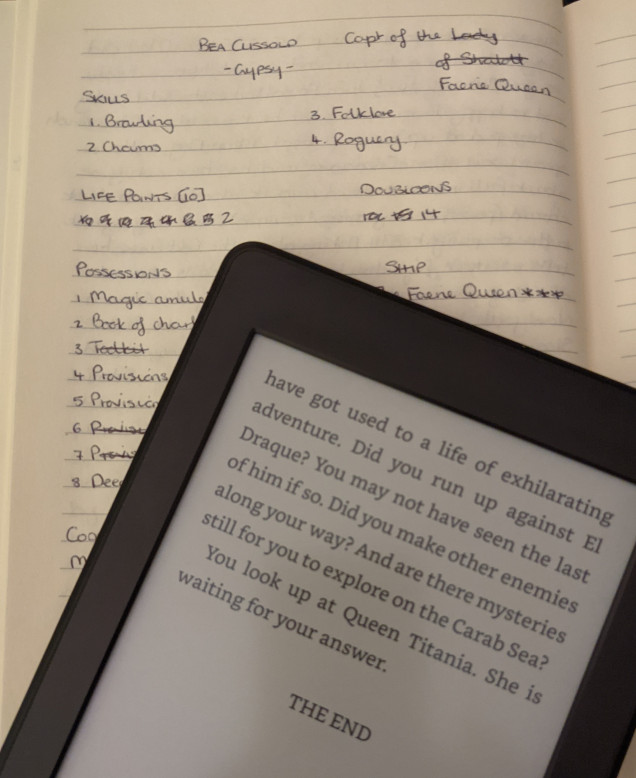 BEA CLISSOLD Capt of the Lady
-GYPSY- of Shalott
Faerie Queen
SKILLS
1. Brawling 3. Folklore
2 Charms 4. Roguery
LIFE POINTS [10] DOUBLOONS
2 15 14
POSSESSIONS SHIP
1 Magic amule Faerie Queen ***
2 Book of char
3 Toolkit
4 Provisions
5 Provision
6
7
8 Dee
Co
M
have got used to a life of exhilarating
adventure. Did you run up against El
Draque? You may not have seen the last
of him if so. Did you make other enemies
along your way? And are there mysteries
still for you to explore on the Carab Sea?
You look up at Queen Titania. She is
waiting for your answer.
THE END